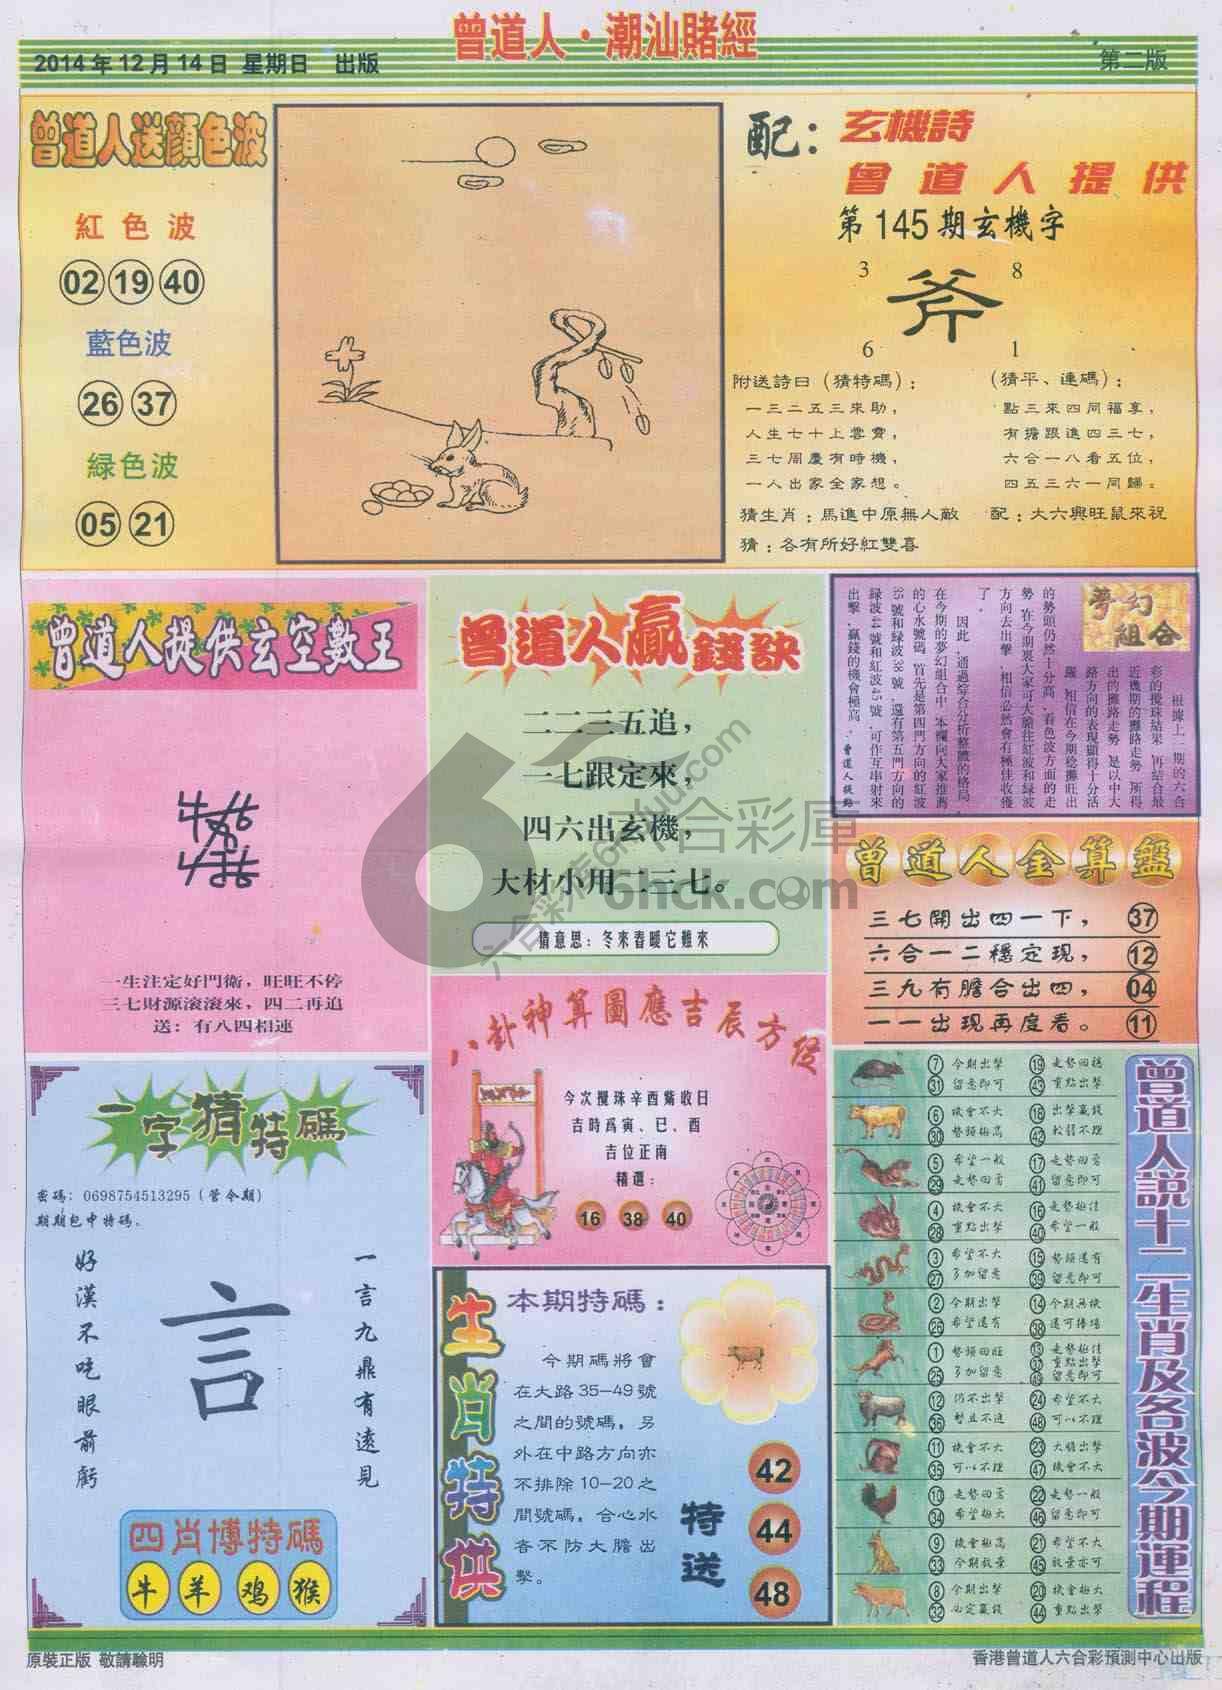 曾道人·潮汕賭經
2014年12月14日 星期日 出版
第二版
曾道人送顔色波
紅色波
02 19 40
藍色波
26 37
緑色波
05 21
配：玄機詩
曾道人提供
第145期玄機字
3 8
斧
6 1
附送詩曰（猜特碼）：
一三二五三來助，
人生七十上雲霄，
三七周慶有時機，
一人出家全家想。
（猜平、連碼）：
點三來四同福享，
有擔跟進四三七，
六合一八看五位，
四五三六一同歸。
猜生肖：馬進中原無人敵
配：大六興旺鼠來祝
猜：各有所好紅雙喜
曾道人提供玄空數王
一生注定好門衛，旺旺不停
三七財源滾滾來，四二再追
送：有八四相連
曾道人贏錢訣
二二三五追，
一七跟定來，
四六出玄機，
大材小用二三七。
猜意思：冬來春暖它難來
夢幻組合
根據上一期的六合
彩的攪珠結果，再結合最
近幾期的攤路走勢，所得
出的攤路走勢，是以中大
路方向的表現顯得十分活
躍，相信在今期稳攤旺出
的勢頭仍然十分高，看色波方面的走
勢，在今期裏大家可大膽往紅波和緑波
方向去出擊，相信必然會有極佳收獲
了。
因此，通過綜合分析整體的格局，
在今期的夢幻組合中，本欄向大家推薦
的心水號碼，首先是第四門方向的紅波
35號和緑波38號，還有第五門方向的
緑波44號和紅波45號，可作互串射來
出擊，贏錢的機會極高。
曾道人提供
曾道人金算盤
三七開出四一下， 37
六合一二穩定現， 12
三九有膽合出四， 04
一一出現再度看。 11
八卦神算圖應吉辰方從
今次攪珠辛酉觜收日
吉時爲寅、巳、酉
吉位正南
精選：
16 38 40
一字猜特碼
密碼：0698754513295（管令期）
期期包中特碼。
一言九鼎有遠見
言
好漢不吃眼前虧
四肖博特碼
牛 羊 鸡 猴
生肖特供
本期特碼：
今期碼將會
在大路35-49號
之間的號碼，另
外在中路方向亦
不排除10-20之
間號碼，合心水
者不防大膽出
擊。
特送
42
44
48
曾道人說十二生肖及各波今期運程
7 今期出擊 19 走勢回穩
31 留意即可 43 重點出擊
6 機會不大 18 出擊贏錢
30 勢頭極高 42 較弱不理
5 希望一般 17 走勢回勇
29 走勢回勇 41 留意即可
4 機會不大 16 走勢極佳
28 重點出擊 40 希望一般
3 希望不大 15 勢頭還有
27 多加留意 39 留意即可
2 今期出擊 14 今期無機
26 希望還有 38 還可捧場
1 勢頭回旺 13 走勢極佳
37 重點出擊
25 多加留意 49 留意即可
12 仍不出擊 24 希望不大
36 暫且不追 48 可以不理
11 機會不大 23 大膽出擊
35 可以不理 47 機會不大
10 走勢回勇 22 走勢一般
34 希望極大 46 留意即可
9 機會極高 21 希望不大
33 今期放棄 45 放棄亦可
8 今期出擊 20 機會極大
32 必定贏錢 44 重點出擊
六合彩庫
6hck.com
原裝正版 敬請聰明
香港曾道人六合彩預測中心出版